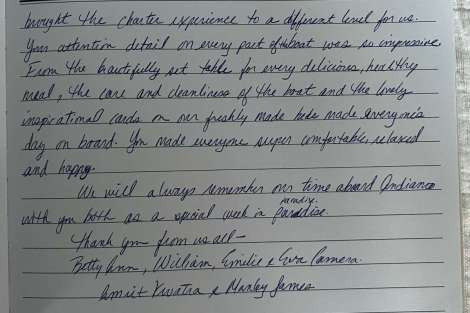 brought the charter experience to a different level for us.
Your attention detail on every part of the boat was so impressive.
From the beautifully set table for every delicious, healthy
meal, the care and cleanliness of the boat and the lovely
inspirational cards on our freshly made beds made everyone's
day on board. You made everyone super comfortable, relaxed
and happy.
We will always remember our time aboard
family
with you both as a special week in paradise.
Thank you from us all —
Betty Ann, William, Emilie & Eva Camera.
Amrit & Manley James